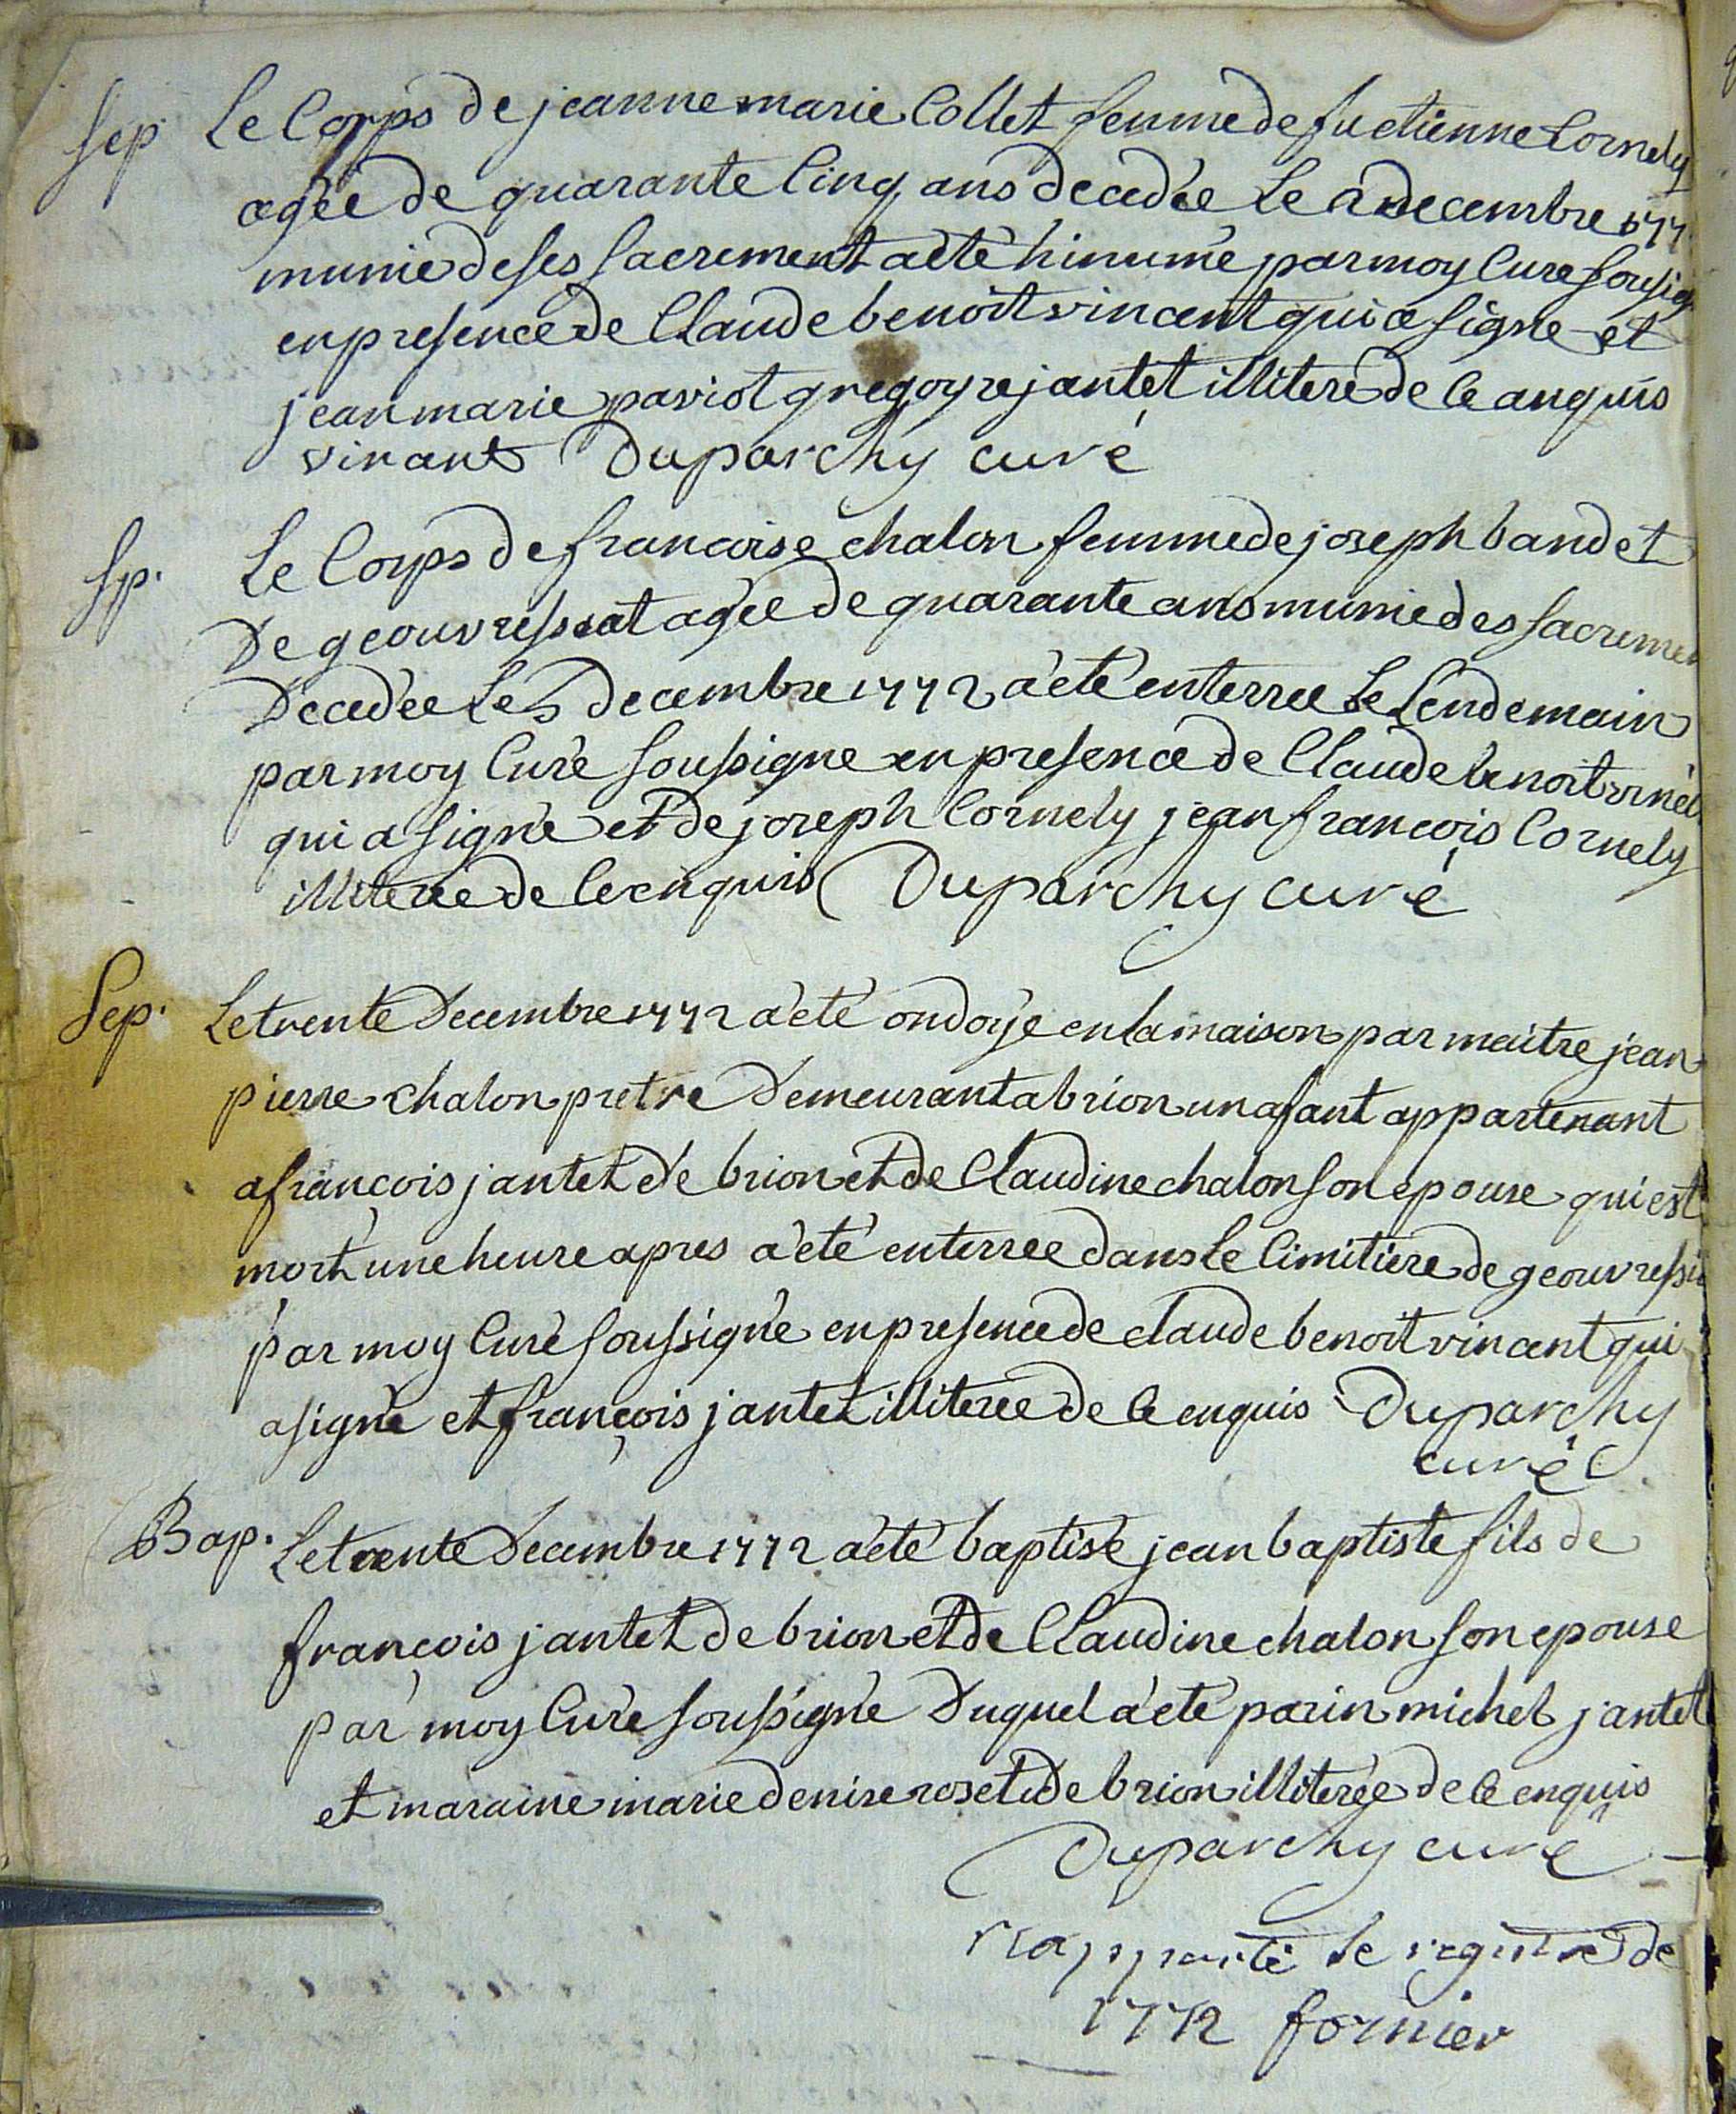 Sep Le Corps de jeanne marie Collet femme de fu etienne Cornely
agée de quarante Cinq ans decedée Le 2 decembre 177
munie de ses Sacrement a été hinumé par moy Cure sousig
en presence de Claude benoit vincent qui a signe et
jean marie paviot gregoyre jantet illiteré de ce anquis
vinant Duparchy curé
Sp. Le Corps de francoise chalon femme de joseph bandet
De geouvressiat agée de quarante ans munie des sacremen
Decedée Le 5 decembre 1772 a été enterree Le Lendemain
par moy Curé soussigne en presence de Claude benoit
qui a signé et de joseph Cornely jean francois Cornely
illiteree de ce enquis Duparchy curé
Sep. Le trente Decembre 1772 a été ondoyé en la maison par maitre jean
pierre chalon pretre Demeurant a brion un afant appartenant
a françois jantet de brion et de Claudine chalon son epouse qui est
mort une heure apres a été enterree dans le Cimitiere de geouvressi
par moy Curé soussigné en presence de claude benoit vincent qui
a signé et françois jantet illiteree de ce enquis Duparchy
curé
Bap. Le trente Decembre 1772 a été baptisé jean baptiste fils de
françois jantet de brion et de Claudine chalon son epouse
par moy Curé soussigné Duquel a été parin michel jantet
et maraine marie denise roset de brion illiterée de ce enquis
Duparchy curé
rapporté le registre de
1772 fornier